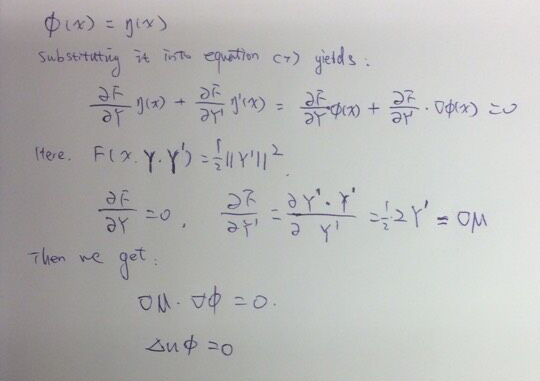 ϕ(x) = η(x)
Substituting it into equation (7) yields:
∂F/∂Y η(x) + ∂F/∂Y' η'(x) = ∂F/∂Y ϕ(x) + ∂F/∂Y' · ∇ϕ(x) = 0
Here. F(x. Y. Y') = 1/2 ||Y'||²
∂F/∂Y = 0, ∂F/∂Y' = ∂Y' · Y'/∂ Y' = 1/2 2Y' = ∇u
Then we get:
∇u · ∇ϕ = 0.
Δuϕ = 0